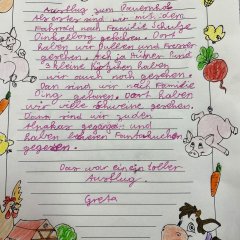 Ausflug zum Bauernhof
Als erster sind wir mit dem
Fahrrad nach Familie Schulze
gefahren. Dort
haben wir Bullen und Fresser
gesehen. Ach ja Hühner und
3 kleine Kätzchen haben
wir auch noch gesehen.
Dan sind wir nach Familie
Öing gefahren. Dort haben
wir viele Schweine gesehen.
Dann sind wir zu den
Alpakas gegangen und
haben leckeren
gegessen.
Das war ein toller
Ausflug.
Greta